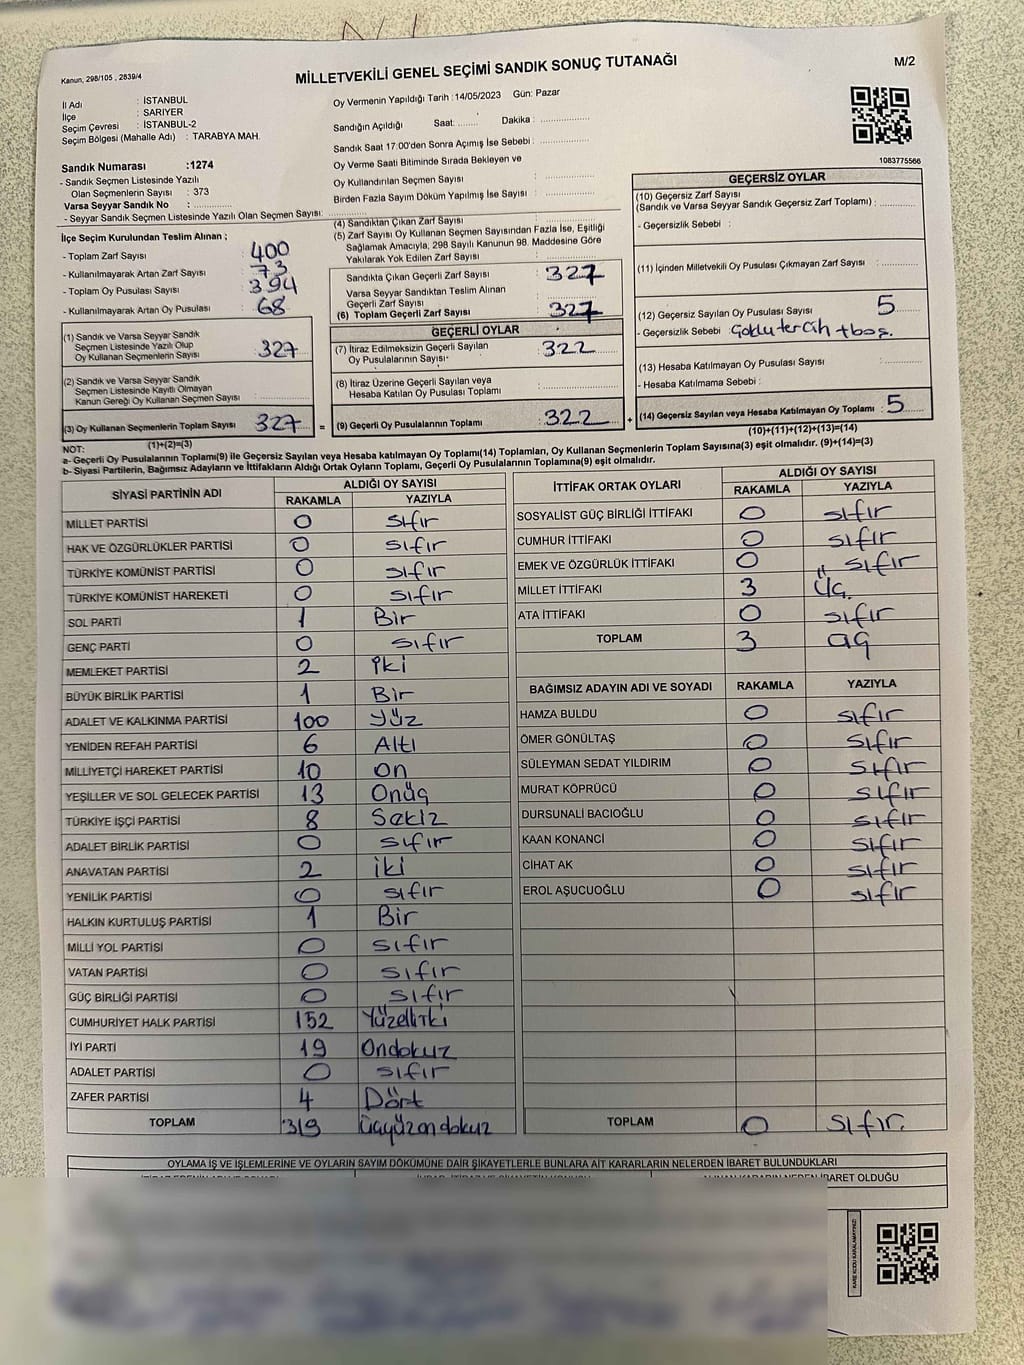 Kanun, 298/105 , 2839/4
MİLLETVEKİLİ GENEL SEÇİMİ SANDIK SONUÇ TUTANAĞI
M/2
İl Adı : İSTANBUL
İlçe : SARIYER
Seçim Çevresi : İSTANBUL-2
Seçim Bölgesi (Mahalle Adı) : TARABYA MAH.
Sandık Numarası :1274
- Sandık Seçmen Listesinde Yazılı
Olan Seçmenlerin Sayısı : 373
Varsa Seyyar Sandık No :
- Seyyar Sandık Seçmen Listesinde Yazılı Olan Seçmen Sayısı:
Oy Vermenin Yapıldığı Tarih :14/05/2023 Gün: Pazar
Sandığın Açıldığı Saat: Dakika :
Sandık Saat 17:00'den Sonra Açımış İse Sebebi :
Oy Verme Saati Bitiminde Sırada Bekleyen ve
Oy Kullandırılan Seçmen Sayısı :
Birden Fazla Sayım Döküm Yapılmış İse Sayısı :
1083775566
İlçe Seçim Kurulundan Teslim Alınan ;
- Toplam Zarf Sayısı : 400
- Kullanılmayarak Artan Zarf Sayısı : 73
- Toplam Oy Pusulası Sayısı : 394
- Kullanılmayarak Artan Oy Pusulası : 68
(1) Sandık ve Varsa Seyyar Sandık
Seçmen Listesinde Yazılı Olup
Oy Kullanan Seçmenlerin Sayısı : 327
(2) Sandık ve Varsa Seyyar Sandık
Seçmen Listesinde Kayıtlı Olmayan
Kanun Gereği Oy Kullanan Seçmen Sayısı :
(3) Oy Kullanan Seçmenlerin Toplam Sayısı : 327 =
(1)+(2)=(3)
(4) Sandıktan Çıkan Zarf Sayısı :
(5) Zarf Sayısı Oy Kullanan Seçmen Sayısından Fazla İse, Eşitliği
Sağlamak Amacıyla, 298 Sayılı Kanunun 98. Maddesine Göre
Yakılarak Yok Edilen Zarf Sayısı :
Sandıkta Çıkan Geçerli Zarf Sayısı : 327
Varsa Seyyar Sandıktan Teslim Alınan
Geçerli Zarf Sayısı :
(6) Toplam Geçerli Zarf Sayısı : 327
GEÇERLİ OYLAR
(7) İtiraz Edilmeksizin Geçerli Sayılan
Oy Pusulalarının Sayısı : 322
(8) İtiraz Üzerine Geçerli Sayılan veya
Hesaba Katılan Oy Pusulası Toplamı :
(9) Geçerli Oy Pusulalarının Toplamı : 322 +
GEÇERSİZ OYLAR
(10) Geçersiz Zarf Sayısı
(Sandık ve Varsa Seyyar Sandık Geçersiz Zarf Toplamı) :
- Geçersizlik Sebebi :
(11) İçinden Milletvekili Oy Pusulası Çıkmayan Zarf Sayısı :
(12) Geçersiz Sayılan Oy Pusulası Sayısı : 5
- Geçersizlik Sebebi : Çoklu tercih + boş.
(13) Hesaba Katılmayan Oy Pusulası Sayısı :
- Hesaba Katılmama Sebebi :
(14) Geçersiz Sayılan veya Hesaba Katılmayan Oy Toplamı : 5
(10)+(11)+(12)+(13)=(14)
NOT:
a- Geçerli Oy Pusulalarının Toplamı(9) ile Geçersiz Sayılan veya Hesaba katılmayan Oy Toplamı(14) Toplamları, Oy Kullanan Seçmenlerin Toplam Sayısına(3) eşit olmalıdır. (9)+(14)=(3)
b- Siyasi Partilerin, Bağımsız Adayların ve İttifakların Aldığı Ortak Oyların Toplamı, Geçerli Oy Pusulalarının Toplamına(9) eşit olmalıdır.
SİYASİ PARTİNİN ADI ALDIĞI OY SAYISI
RAKAMLA YAZIYLA
MİLLET PARTİSİ 0 sıfır
HAK VE ÖZGÜRLÜKLER PARTİSİ 0 sıfır
TÜRKİYE KOMÜNİST PARTİSİ 0 sıfır
TÜRKİYE KOMÜNİST HAREKETİ 0 sıfır
SOL PARTİ 1 Bir
GENÇ PARTİ 0 sıfır
MEMLEKET PARTİSİ 2 iki
BÜYÜK BİRLİK PARTİSİ 1 Bir
ADALET VE KALKINMA PARTİSİ 100 Yüz
YENİDEN REFAH PARTİSİ 6 Altı
MİLLİYETÇİ HAREKET PARTİSİ 10 on
YEŞİLLER VE SOL GELECEK PARTİSİ 13 Onüç
TÜRKİYE İŞÇİ PARTİSİ 8 Sekiz
ADALET BİRLİK PARTİSİ 0 sıfır
ANAVATAN PARTİSİ 2 iki
YENİLİK PARTİSİ 0 sıfır
HALKIN KURTULUŞ PARTİSİ 1 Bir
MİLLİ YOL PARTİSİ 0 sıfır
VATAN PARTİSİ 0 sıfır
GÜÇ BİRLİĞİ PARTİSİ 0 sıfır
CUMHURİYET HALK PARTİSİ 152 Yüzelliiki
İYİ PARTİ 19 Ondokuz
ADALET PARTİSİ 0 sıfır
ZAFER PARTİSİ 4 Dört
TOPLAM 319 üçyüzondokuz
İTTİFAK ORTAK OYLARI ALDIĞI OY SAYISI
RAKAMLA YAZIYLA
SOSYALİST GÜÇ BİRLİĞİ İTTİFAKI 0 sıfır
CUMHUR İTTİFAKI 0 sıfır
EMEK VE ÖZGÜRLÜK İTTİFAKI 0 sıfır
MİLLET İTTİFAKI 3 Üç.
ATA İTTİFAKI 0 sıfır
TOPLAM 3 üç
BAĞIMSIZ ADAYIN ADI VE SOYADI RAKAMLA YAZIYLA
HAMZA BULDU 0 sıfır
ÖMER GÖNÜLTAŞ 0 sıfır
SÜLEYMAN SEDAT YILDIRIM 0 sıfır
MURAT KÖPRÜCÜ 0 sıfır
DURSUNALİ BACIOĞLU 0 sıfır
KAAN KONANCİ 0 sıfır
CİHAT AK 0 sıfır
EROL AŞUCUOĞLU 0 sıfır
TOPLAM 0 sıfır.
OYLAMA İŞ VE İŞLEMLERİNE VE OYLARIN SAYIM DÖKÜMÜNE DAİR ŞİKAYETLERLE BUNLARA AİT KARARLARIN NELERDEN İBARET BULUNDUKLARI
ALINAN KARARIN NEDEN İBARET OLDUĞU